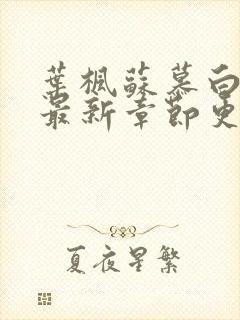 葉楓蘇慕白
最新章節更
夏夜星繁